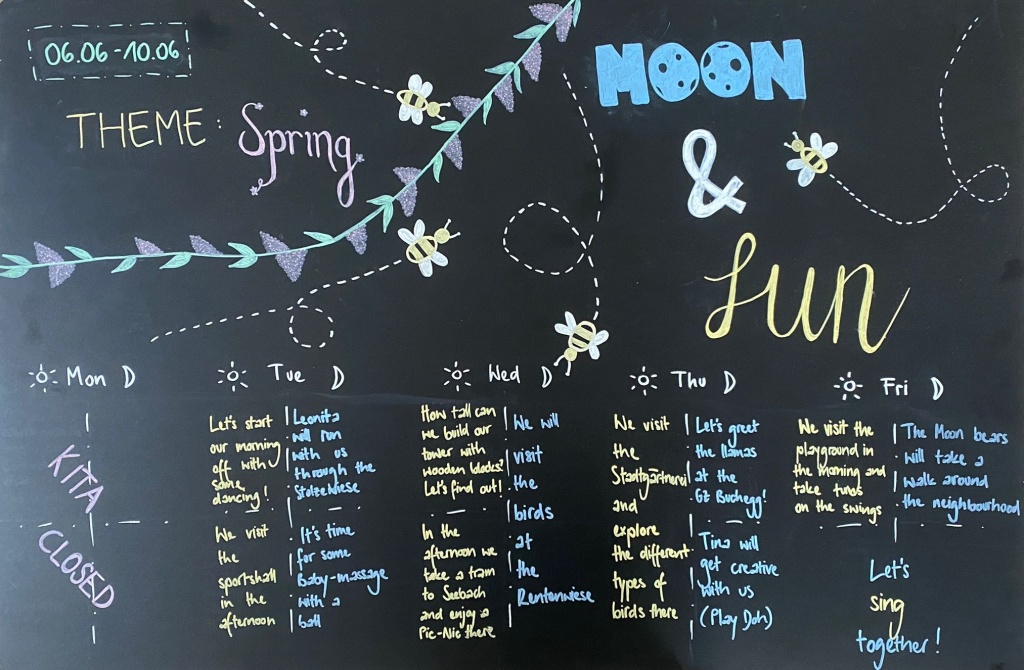 06.06 - 10.06
THEME: Spring
MOON
&
Sun
Mon
KITA
CLOSED
Tue
Let's start
our morning
off with
some
dancing!
Leonita
will run
with us
through the
Stolzewiese
We visit
the
sportshall
in the
afternoon
It's time
for some
Baby-massage
with a
ball
Wed
How tall can
we build our
tower with
wooden blocks?
Let's find out!
In the
afternoon we
take a tram
to Seebach
and enjoy a
Pic-Nic there
We will
visit
the
birds
at
the
Rentenwiese
Thu
We visit
the
Stadtgärtnerei
and
explore
the different
types of
birds there
Let's greet
the llamas
at the
GZ Buchegg!
Tina will
get creative
with us
(Play Doh)
Fri
We visit the
playground in
the morning and
take turns
on the swings
The Moon bears
will take a
walk around
the neighbourhood
Let's
sing
together!